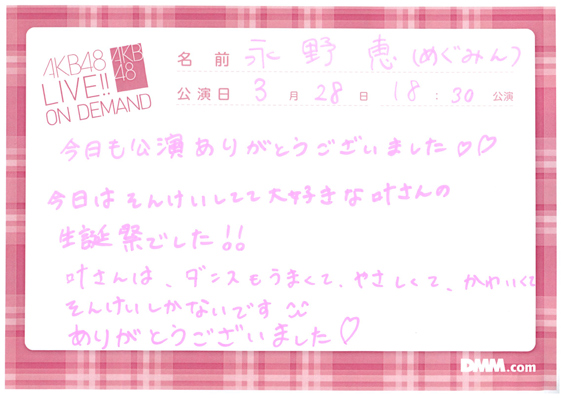 AKB48
LIVE!!
ON DEMAND
AKB
48
名前 永野 恵(めぐみん)
公演日 3月28日 18:30 公演
今日も公演ありがとうございました♡♡
今日はそんけいしてて大好きな叶さんの
生誕祭でした!!
叶さんは、ダンスもうまくて、やさしくて、かわいくて
そんけいしかないです^^
ありがとうございました♡
DMM.com